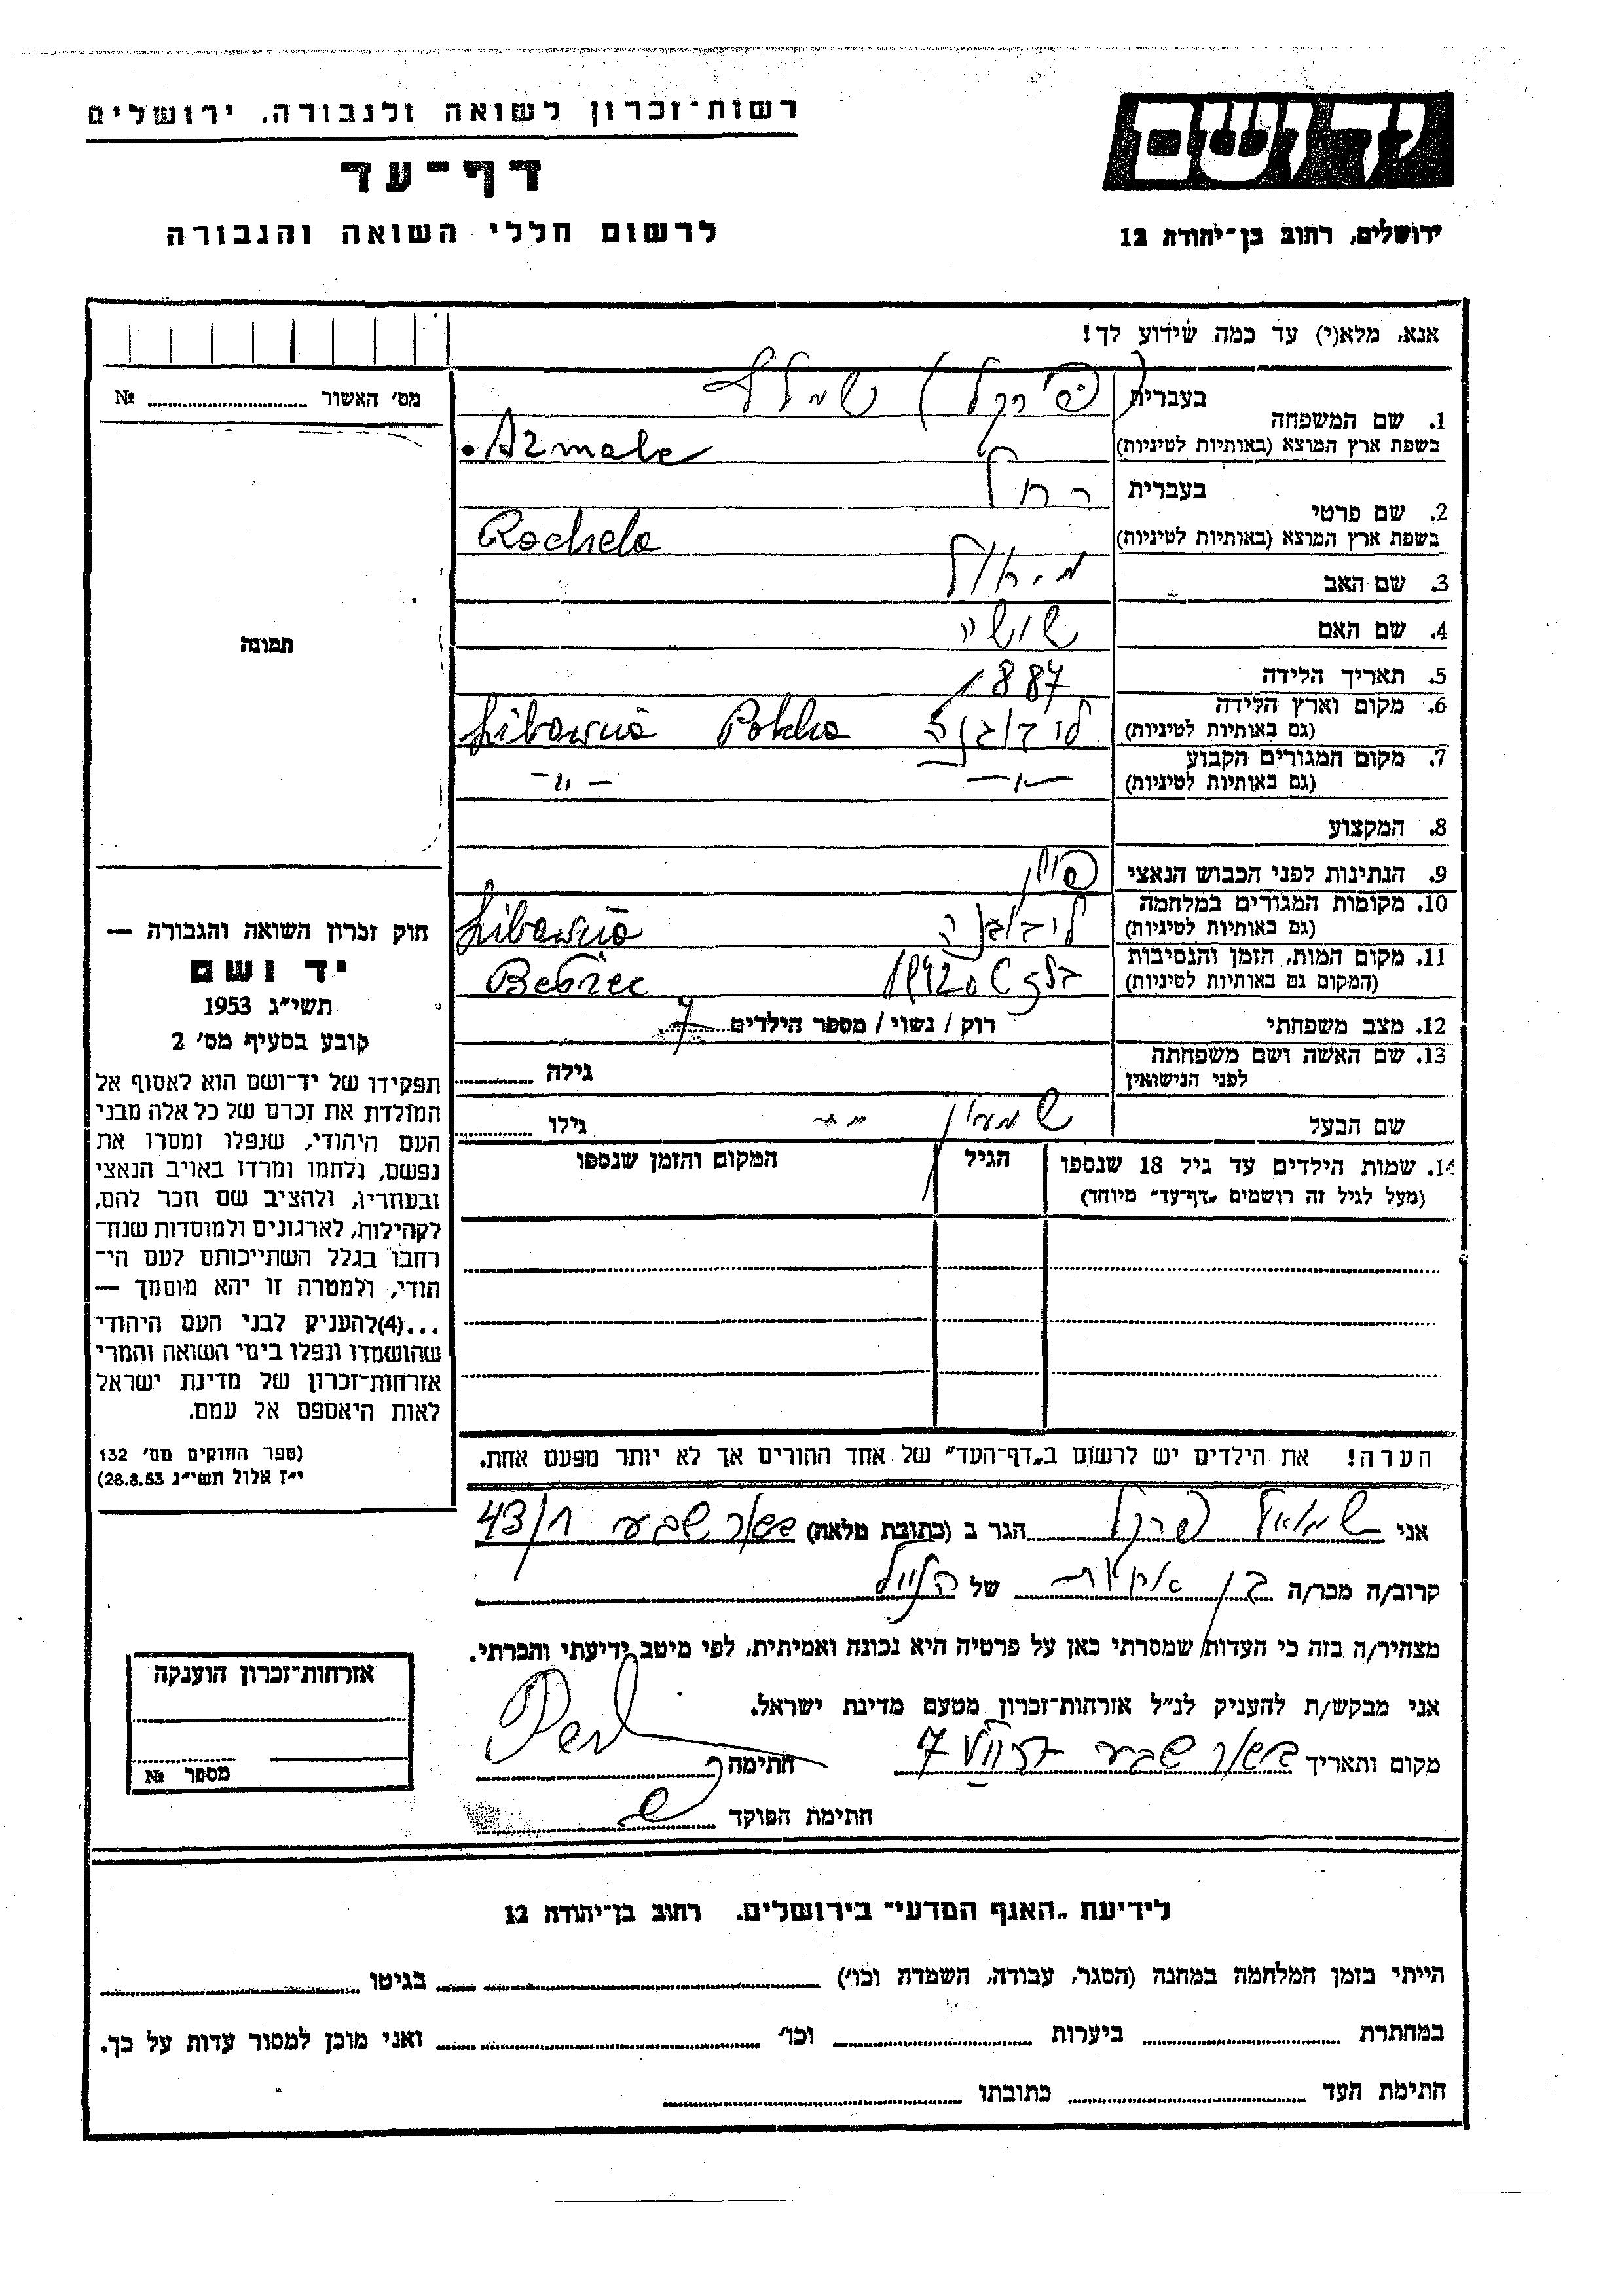 רשות-זכרון לשואה ולגבורה, ירושלים
דף-עד
לרשום חללי השואה והגבורה
ידושם
ירושלים, רחוב בן-יהודה 12
אנא, מלא(י) עד כמה שידוע לך!
מס׳ האשור № 
תמונה
חוק זכרון השואה והגבורה —
יד ושם
תשי״ג 1953
קובע בסעיף מס׳ 2
תפקידו של יד-ושם הוא לאסוף אל
המולדת את זכרם של כל אלה מבני
העם היהודי, שנפלו ומסרו את
נפשם, נלחמו ומרדו באויב הנאצי
ובעוזריו, ולהציב שם וזכר להם,
לקהילות, לארגונים ולמוסדות שנח-
רחבו בגלל השתייכותם לעם הי-
הודי, ולמטרה זו יהא מוסמך —
...(4)להעניק לבני העם היהודי
שהושמדו ונפלו בימי השואה והמרי
אזרחות-זכרון של מדינת ישראל
לאות היאספם אל עמם.
(ספר החוקים מס׳ 132
י״ז אלול תשי״ג 28.8.53)
1. שם המשפחה
בעברית (פרקל)
בשפת ארץ המוצא (באותיות לטיניות)
2. שם פרטי
בעברית רחל
בשפת ארץ המוצא (באותיות לטיניות) Rochela
3. שם האב
4. שם האם
5. תאריך הלידה 1887
6. מקום וארץ הלידה
(גם באותיות לטיניות) Polska
7. מקום המגורים הקבוע
(גם באותיות לטיניות) -״- -״-
8. המקצוע
9. הנתינות לפני הכבוש הנאצי פולין
10. מקומות המגורים במלחמה
(גם באותיות לטיניות)
11. מקום המות, הזמן והנסיבות
(המקום גם באותיות לטיניות) 1942 Bełżec
12. מצב משפחתי רוק / נשוי / מספר הילדים 7
13. שם האשה ושם משפחתה
לפני הנישואין גילה
שם הבעל שמעון גילו
14. שמות הילדים עד גיל 18 שנספו הגיל המקום והזמן שנספו
(מעל לגיל זה רושמים „דף-עד״ מיוחד)
הערה! את הילדים יש לרשום ב„דף-העד״ של אחד ההורים אך לא יותר מפעם אחת.
אני שמואל פרקל הגר ב (כתובת מלאה) באר שבע 43/1
קרוב/ה מכר/ה בן של הנ״ל
מצהיר/ה בזה כי העדות שמסרתי כאן על פרטיה היא נכונה ואמיתית, לפי מיטב ידיעתי והכרתי.
אני מבקש/ת להעניק לנ״ל אזרחות-זכרון מטעם מדינת ישראל.
מקום ותאריך באר שבע חתימה
חתימת הפוקד
אזרחות-זכרון הוענקה
מספר №
לידיעת „האגף המדעי״ בירושלים. רחוב בן-יהודה 12
הייתי בזמן המלחמה במחנה (הסגר, עבודה, השמדה וכו׳) בגיטו
במחתרת ביערות וכו׳ ואני מוכן למסור עדות על כך.
חתימת העד כתובתו